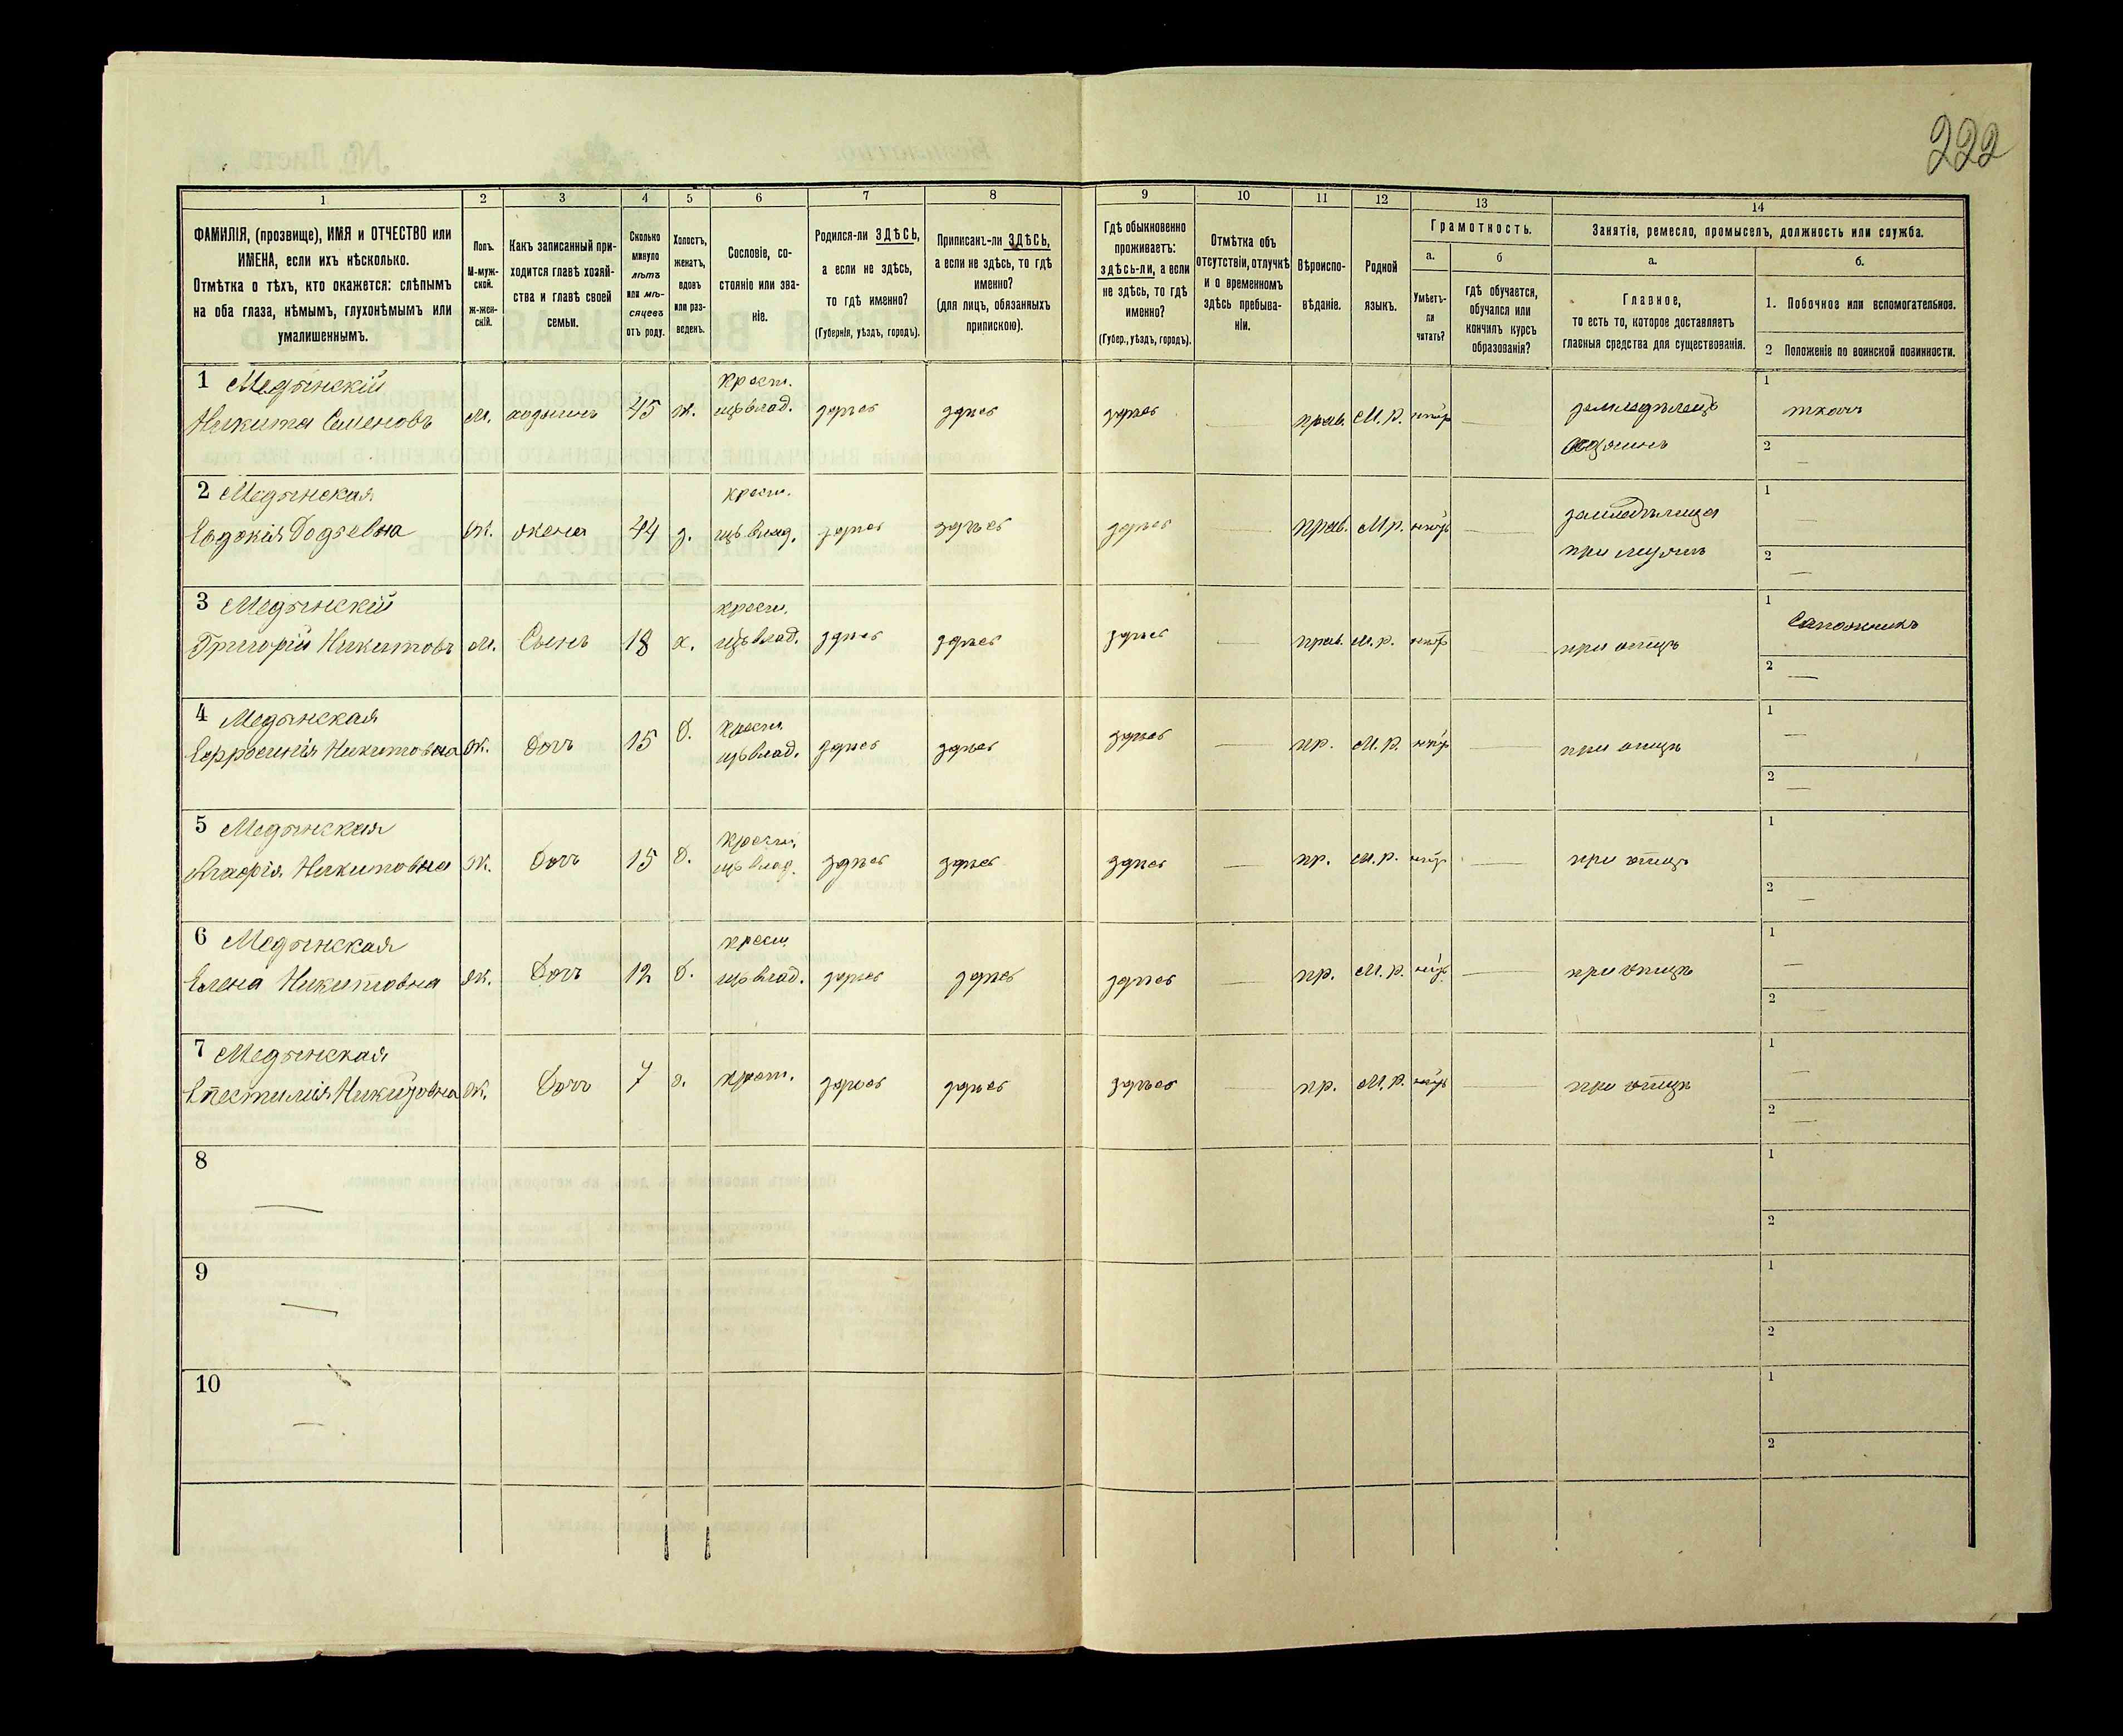 222
1 2 3 4 5 6 7 8 9 10 11 12 13 14
ФАМИЛІЯ, (прозвище), ИМЯ и ОТЧЕСТВО или
ИМЕНА, если ихъ нѣсколько.
Отмѣтка о тѣхъ, кто окажется: слѣпымъ
на оба глаза, нѣмымъ, глухонѣмымъ или
умалишеннымъ.
Полъ.
М-муж-
ской.
ж-жен-
скій.
Какъ записанный при-
ходится главѣ хозяй-
ства и главѣ своей
семьи.
Сколько
минуло
лѣтъ
или мѣ-
сяцевъ
отъ роду.
Холостъ,
женатъ,
вдовъ
или раз-
веденъ.
Сословіе, со-
стояніе или зва-
ніе.
Родился-ли ЗДѢСЬ,
а если не здѣсь,
то гдѣ именно?
(Губернія, уѣздъ, городъ).
Приписанъ-ли ЗДѢСЬ,
а если не здѣсь, то гдѣ
именно?
(для лицъ, обязанныхъ
припискою).
Гдѣ обыкновенно
проживаетъ:
здѣсь-ли, а если
не здѣсь, то гдѣ
именно?
(Губер., уѣздъ, городъ).
Отмѣтка объ
отсутствіи, отлучкѣ
и о временномъ
здѣсь пребыва-
ніи.
Вѣроиспо-
вѣданіе.
Родной
языкъ.
Грамотность.
а.
Умѣетъ-
ли
читать?
б
гдѣ обучается,
обучался или
кончилъ курсъ
образованія?
Занятія, ремесло, промыселъ, должность или служба.
а.
Главное,
то есть то, которое доставляетъ
главныя средства для существованія.
б.
1. Побочное или вспомогательное.
2 Положеніе по воинской повинности.
1 Медынскій крест. 1
Никита Семеновъ м. хозяинъ 45 ж. здѣсь здѣсь здѣсь прав. М. р. земледѣлецъ ткачъ
хозяинъ 2
2 Медынская крест. 1
Евдокія ж. жена 44 з. здѣсь здѣсь здѣсь прав. М р. земледѣлица
при мужѣ 2
3 Медынскій крест. 1
Григорій Никитовъ м. Сынъ 18 х. здѣсь здѣсь здѣсь прав. М. р. при отцѣ Сапожникъ
2
4 Медынская крест. 1
Ефросинія Никитовна ж. Дочь 15 д. здѣсь здѣсь здѣсь пр. М. р. при отцѣ
2
5 Медынская крест. 1
Агафія Никитовна ж. Дочь 15 д. здѣсь здѣсь здѣсь пр. М. р. при отцѣ
2
6 Медынская крест. 1
Елена Никитовна ж. Дочь 12 д. здѣсь здѣсь здѣсь пр. М. р. при отцѣ
2
7 Медынская 1
Никитовна ж. Дочь 7 д. крест. здѣсь здѣсь здѣсь пр. М. р. при отцѣ
2
8 1
2
9 1
2
10 1
2